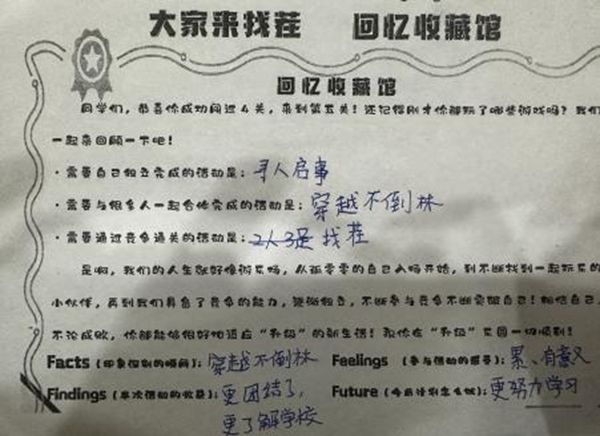 大家来找茬 回忆收藏馆
回忆收藏馆
同学们，恭喜你成功闯过4关，来到第五关！还记得刚才你都玩了哪些游戏吗？我们
一起来回顾一下吧！
·需要自己独立完成的活动是：寻人启事
·需要与很多人一起合作完成的活动是：穿越不倒林
·需要通过竞争通关的活动是：找茬
是啊，我们的人生就好像游乐场，从孤零零的自己入场开始，到不断找到一起玩乐的
小伙伴，再到我们具备了竞争的能力，逐渐独立，不断参与竞争不断突破自己！相信自己，
不论成败，你都能够很好地适应“升级”的新生活！祝你在“升级”乐园一切顺利！
Facts（印象深刻的瞬间）：穿越不倒林 Feelings（参与活动的感受）：累、有意义
Findings（本次活动的收获）：更团结了， Future（今后计划怎么做）：更努力学习
更了解学校